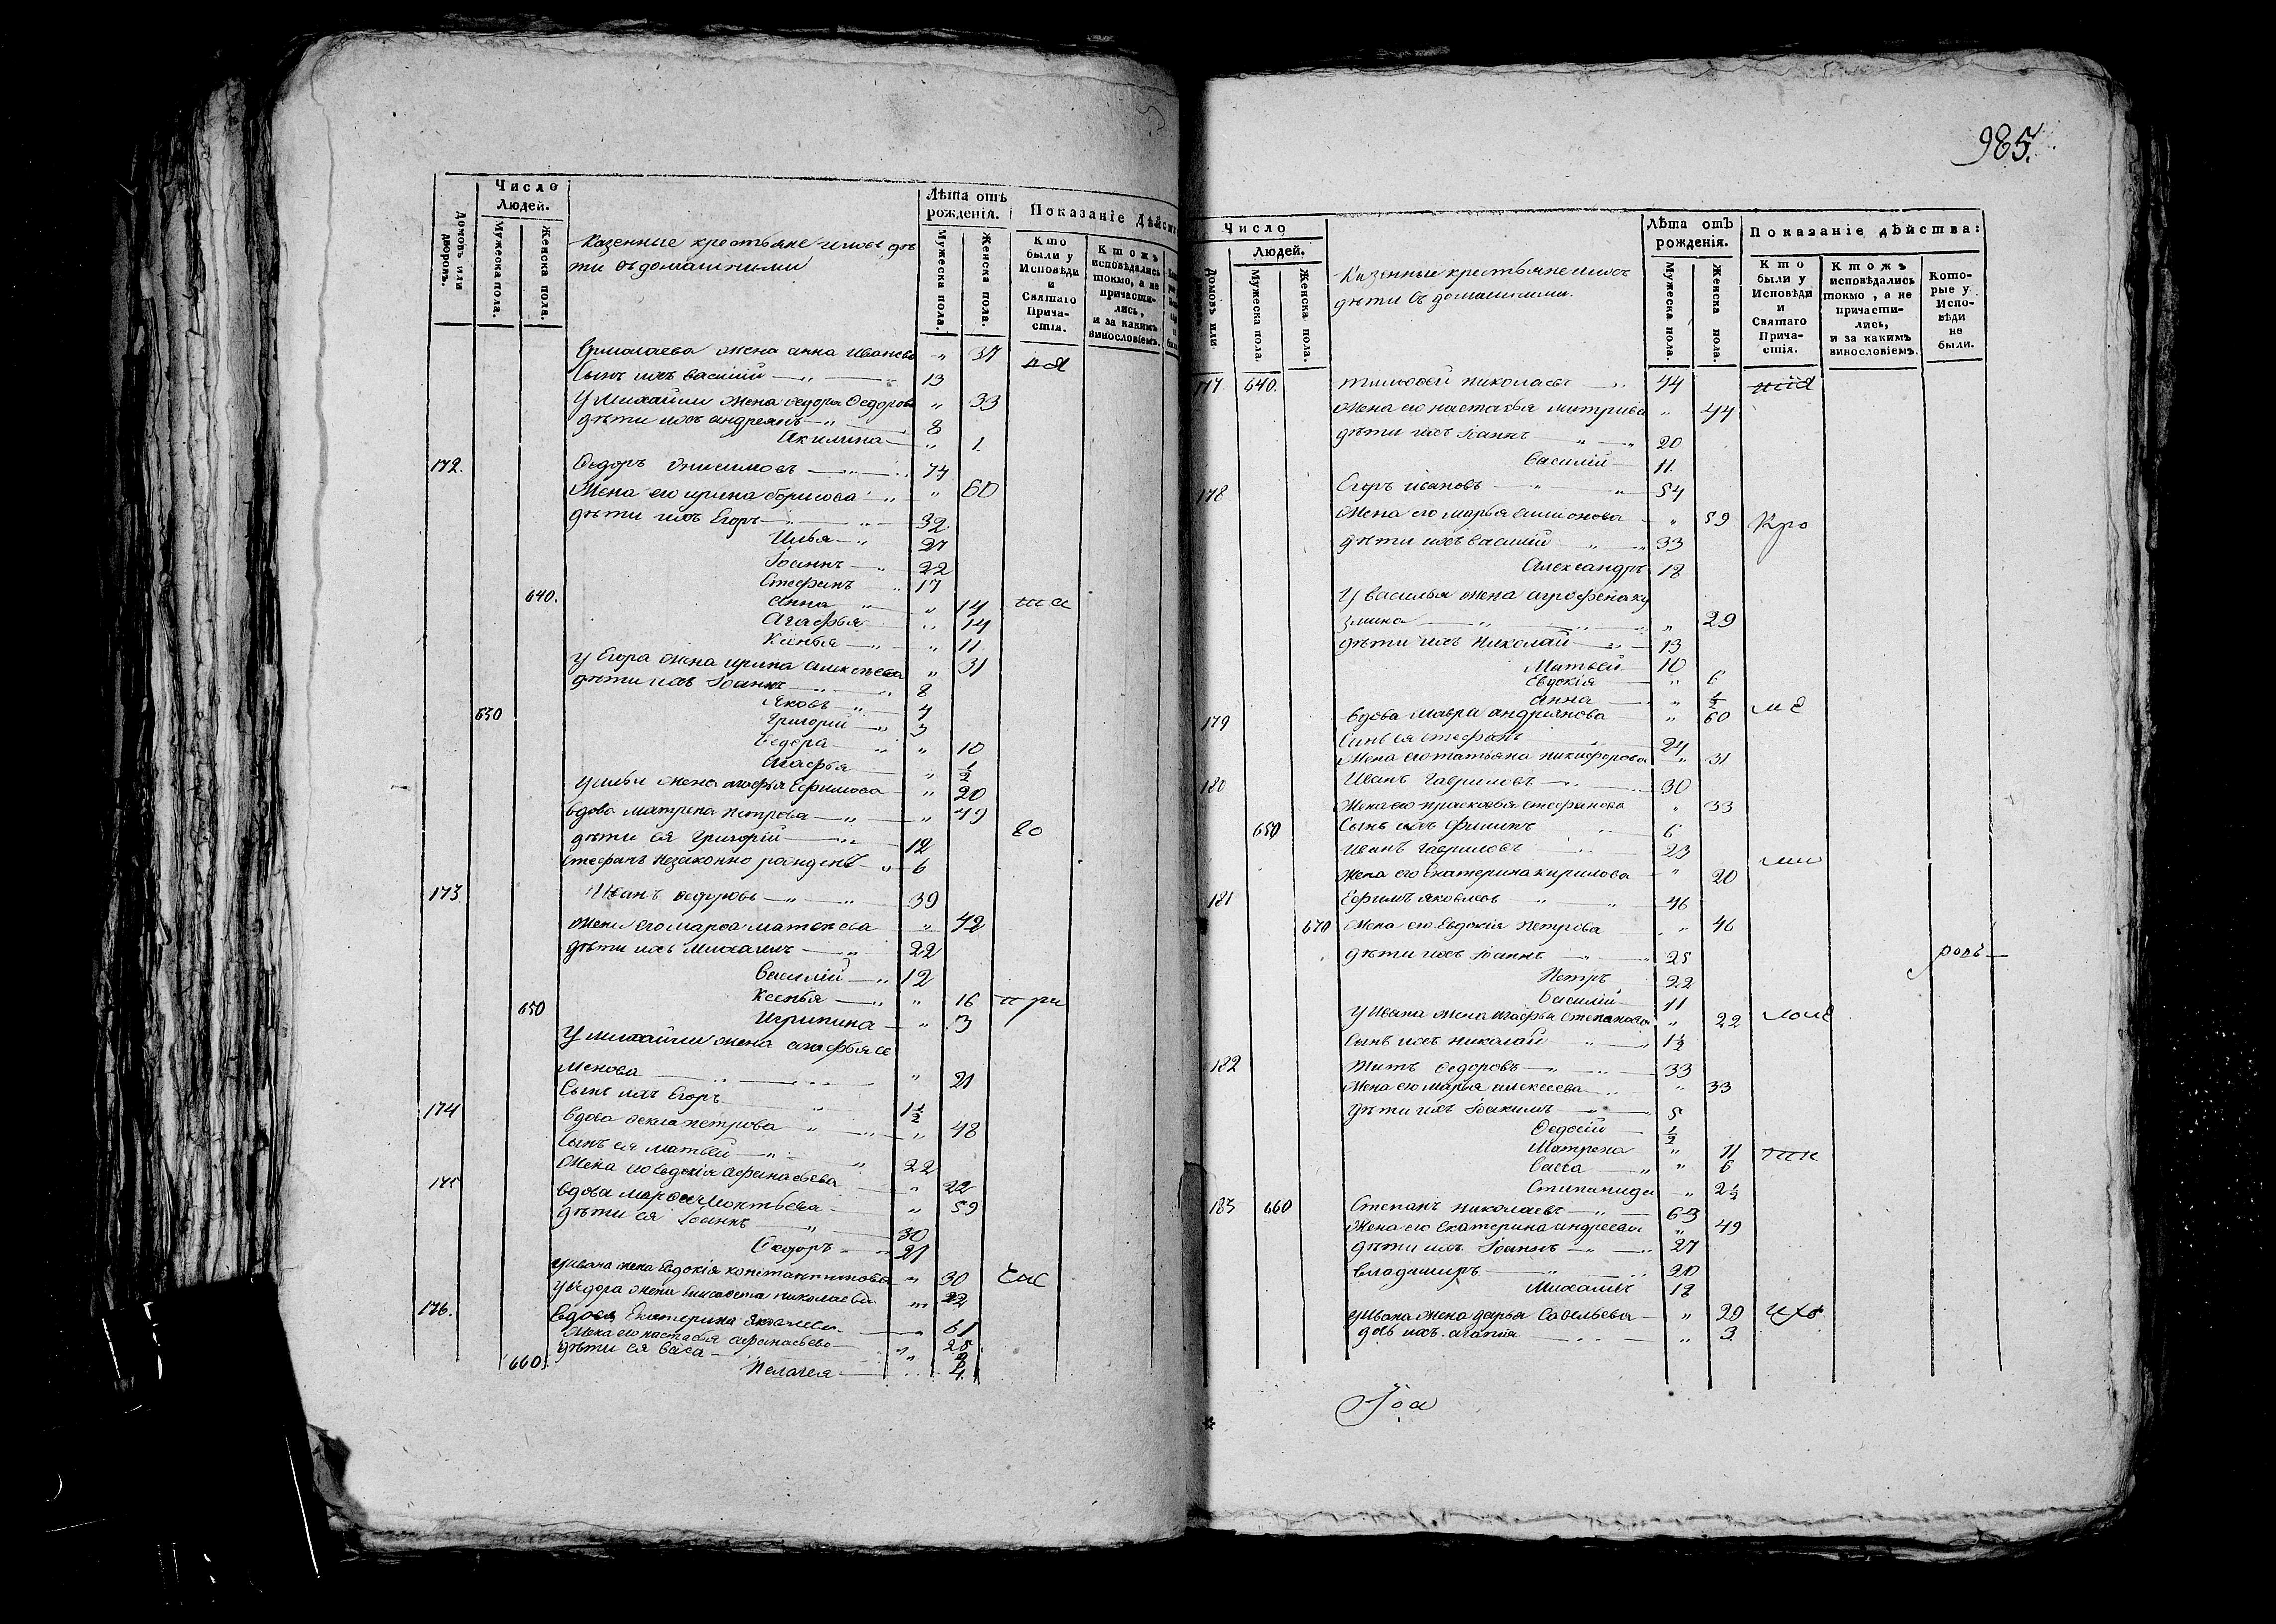 985.
Число
Людей.
Домовъ или дворовъ.
Мужеска пола.
Женска пола.
Казенные крестьяне и ихъ дѣ
ти съ домашними
Лѣта отъ
рожденія.
Мужеска пола.
Женска пола.
Показаніе дѣйст
Кто
были у
Исповѣди
и
Святаго
Прича-
стія.
Ктожъ
исповѣдались
токмо, а не
причасти-
лись,
и за какимъ
винословіемъ.
Ермолаева жена анна Иванова " 37
Сынъ ихъ василій 13
У Михайли жена ѳедора Ѳедорова " 33
дѣти ихъ андреянъ 8
Акилина " 1
172. Ѳедоръ Онисимовъ 74
Жена его ирина борисова " 60
дѣти ихъ Егоръ 32
Илья 27
Іоаннъ 22
Стефанъ 17
640. Анна " 14
Агафья " 14
Ксенья " 11
У Егора жена ирина алексѣева " 31
дѣти ихъ Іоаннъ 8
Яковъ 4
650 Григорій 3
Ѳедора " 10
Агафья " ½
У ильи жена агафья Ефимова " 20
вдова матрена петрова " 49
дѣти ея Григорій 12 во
Стефанъ незаконно рожденъ 6
173 Иванъ ѳедоровъ 39
жена его марѳа матвѣева " 42
дѣти ихъ михаилъ 22
Василій 12
Ксенья " 16 при
650 Игрипина " 3
У михайли жена агафья се
менова " 21
Сынъ ихъ Егоръ 1½
174 вдова ѳекла петрова " 48
Сынъ ея матвей 22
Жена его Евдокія афанасьева " 22
175 вдова марѳа " 59
дѣти ея Іоаннъ 30
Ѳедоръ 21
У ивана жена Евдокія константинова " 30 Час
У ѳедора жена Елисавета николаева " 22
176. вдова Екатерина Яковлева 61
Жена его настасья афанасьева 28
дѣти ея васса "
660. Пелагея 4
Число
Людей.
Домовъ или
Мужеска пола.
Женска пола.
Казенные крестьяне и ихъ
дѣти съ домашними.
Лѣта отъ
рожденія.
Мужеска пола.
Женска пола.
Показаніе дѣйства:
Кто
были у
Исповѣди
и
Святаго
Прича-
стія.
Ктожъ
исповѣдались
токмо, а не
причасти-
лись,
и за какимъ
винословіемъ.
Кото-
рые у
Испо-
вѣди
не
были.
177 640. тимоѳей николаевъ 44
Жена его настасья митриева " 44
дѣти ихъ Іоаннъ 20
Василій 11
178 Егоръ ивановъ 54
Жена его марья симіонова " 59 Кро
дѣти ихъ василій 33
Александръ 18
У василья жена агрофена ку
змина " 29
дѣти ихъ Николай 13
Матвей 10
Евдокія " 6
анна " ½
179 вдова мавра андреянова " 60 мѣ
Сынъ ея стефанъ 24
Жена его татьяна никифорова " 31
180 Иванъ Гавриловъ 30
Жена его прасковья стефанова " 33
650 Сынъ ихъ Филипъ 6
Иванъ Гавриловъ 23
Жена его Екатерина кирилова " 20
181 Ефимъ Яковлевъ 46
670 Жена его Евдокія петрова " 46
дѣти ихъ Іоаннъ 25
Петръ 22
Василій 11
У Ивана жена агафья степанова " 22
Сынъ ихъ николай 1½
182 Титъ ѳедоровъ 33
Жена его марья алексеева " 33
дѣти ихъ Іоакимъ 5
Ѳедосій ½
Матрена " 11
Васса " 6
Стипанида " 2½
183 660 Степанъ николаевъ 63
Жена его Екатерина андреева " 49
дѣти ихъ Іоаннъ 27
владимиръ 20
Михаилъ 18
У Ивана жена дарья Савельева " 20 ихъ
дочь ихъ агапія " 3
Іоа